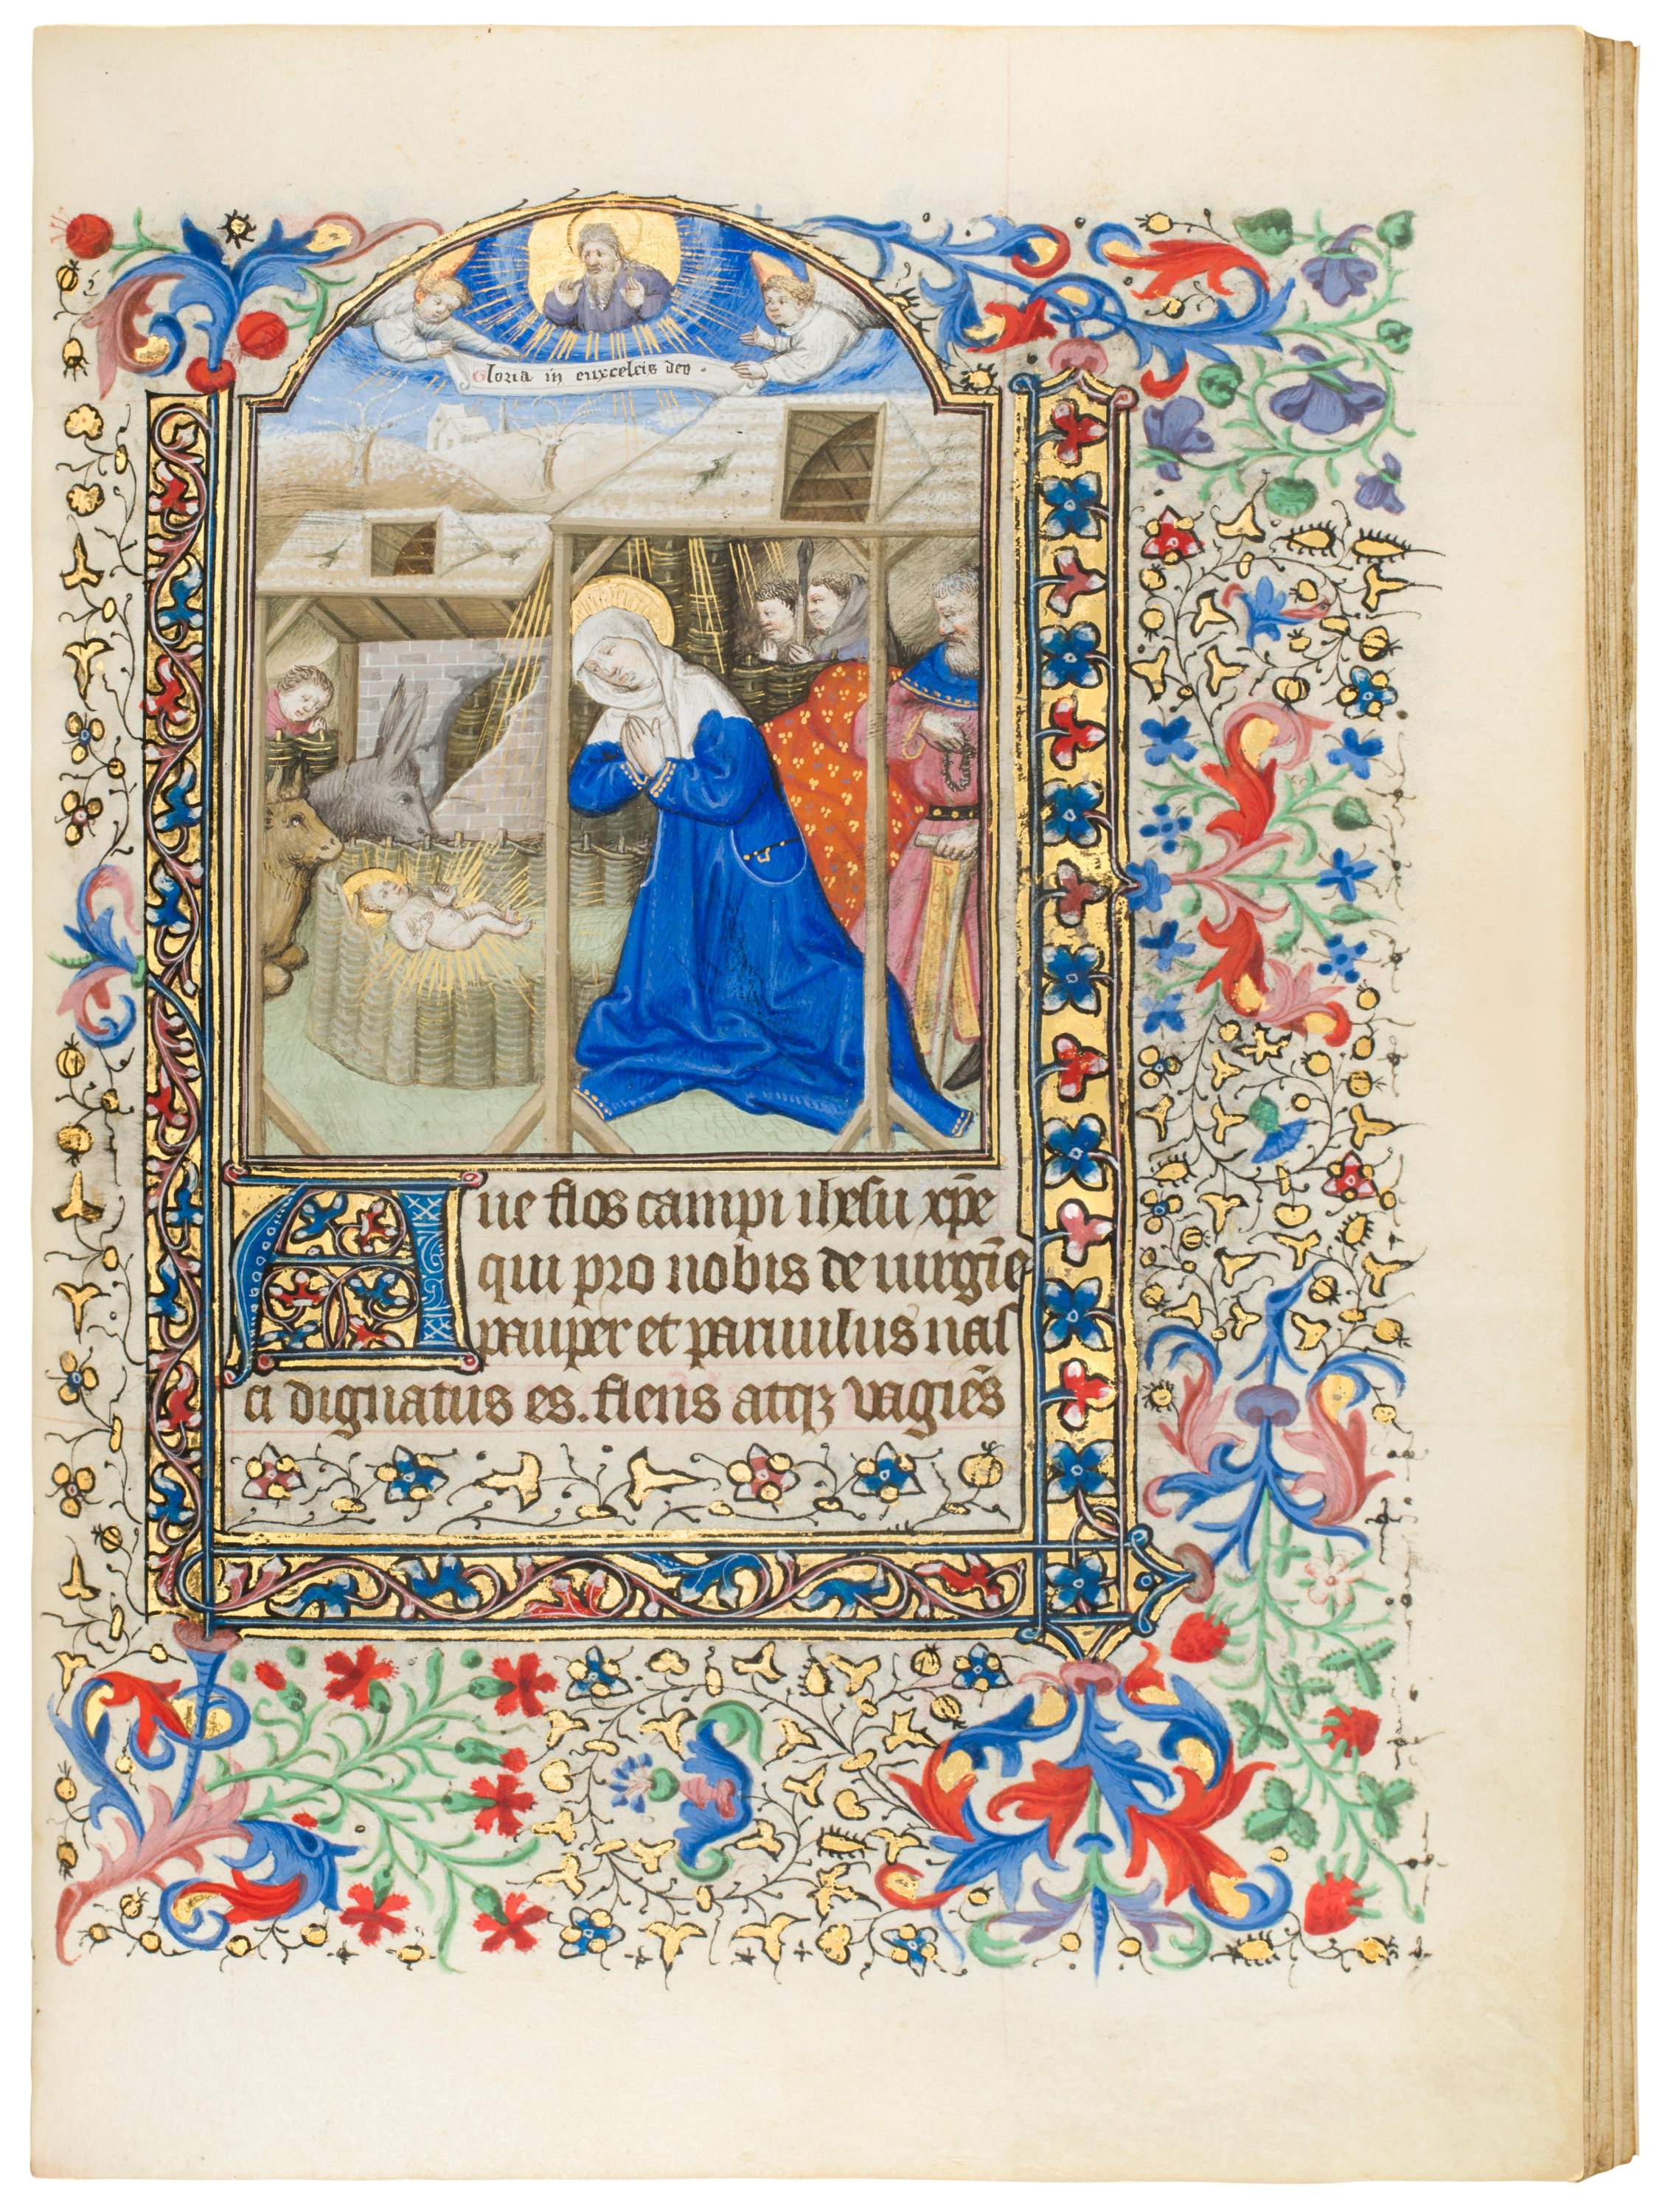 Gloria in euxcelcis deo.
Aue flos campi ihesu xp̄e
qui pro nobis de uirgīe
pauper et paruulus nas
ci dignatus es. flens atqꝫ vagiēs